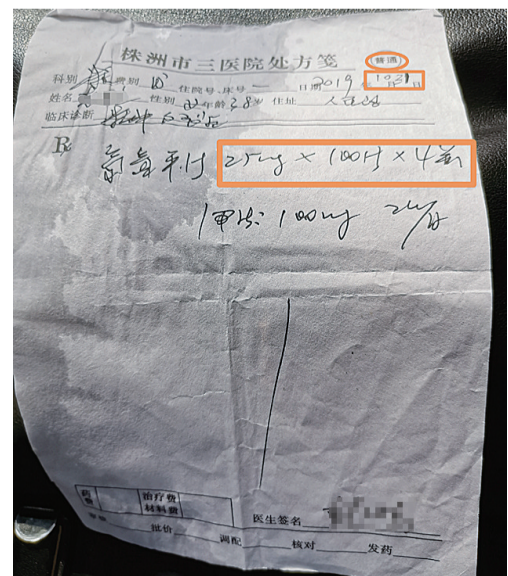 株洲市三医院处方笺 (普通)
科别 费别 住院号、床号 一 日期2019年10月31日
姓名 性别 年龄38岁 住址
临床诊断
R
氯氮平片 25mg×100片×4盒
用法:100mg 2次/日
药费 治疗费 材料费
医生签名
审核 批价 调配 核对 发药